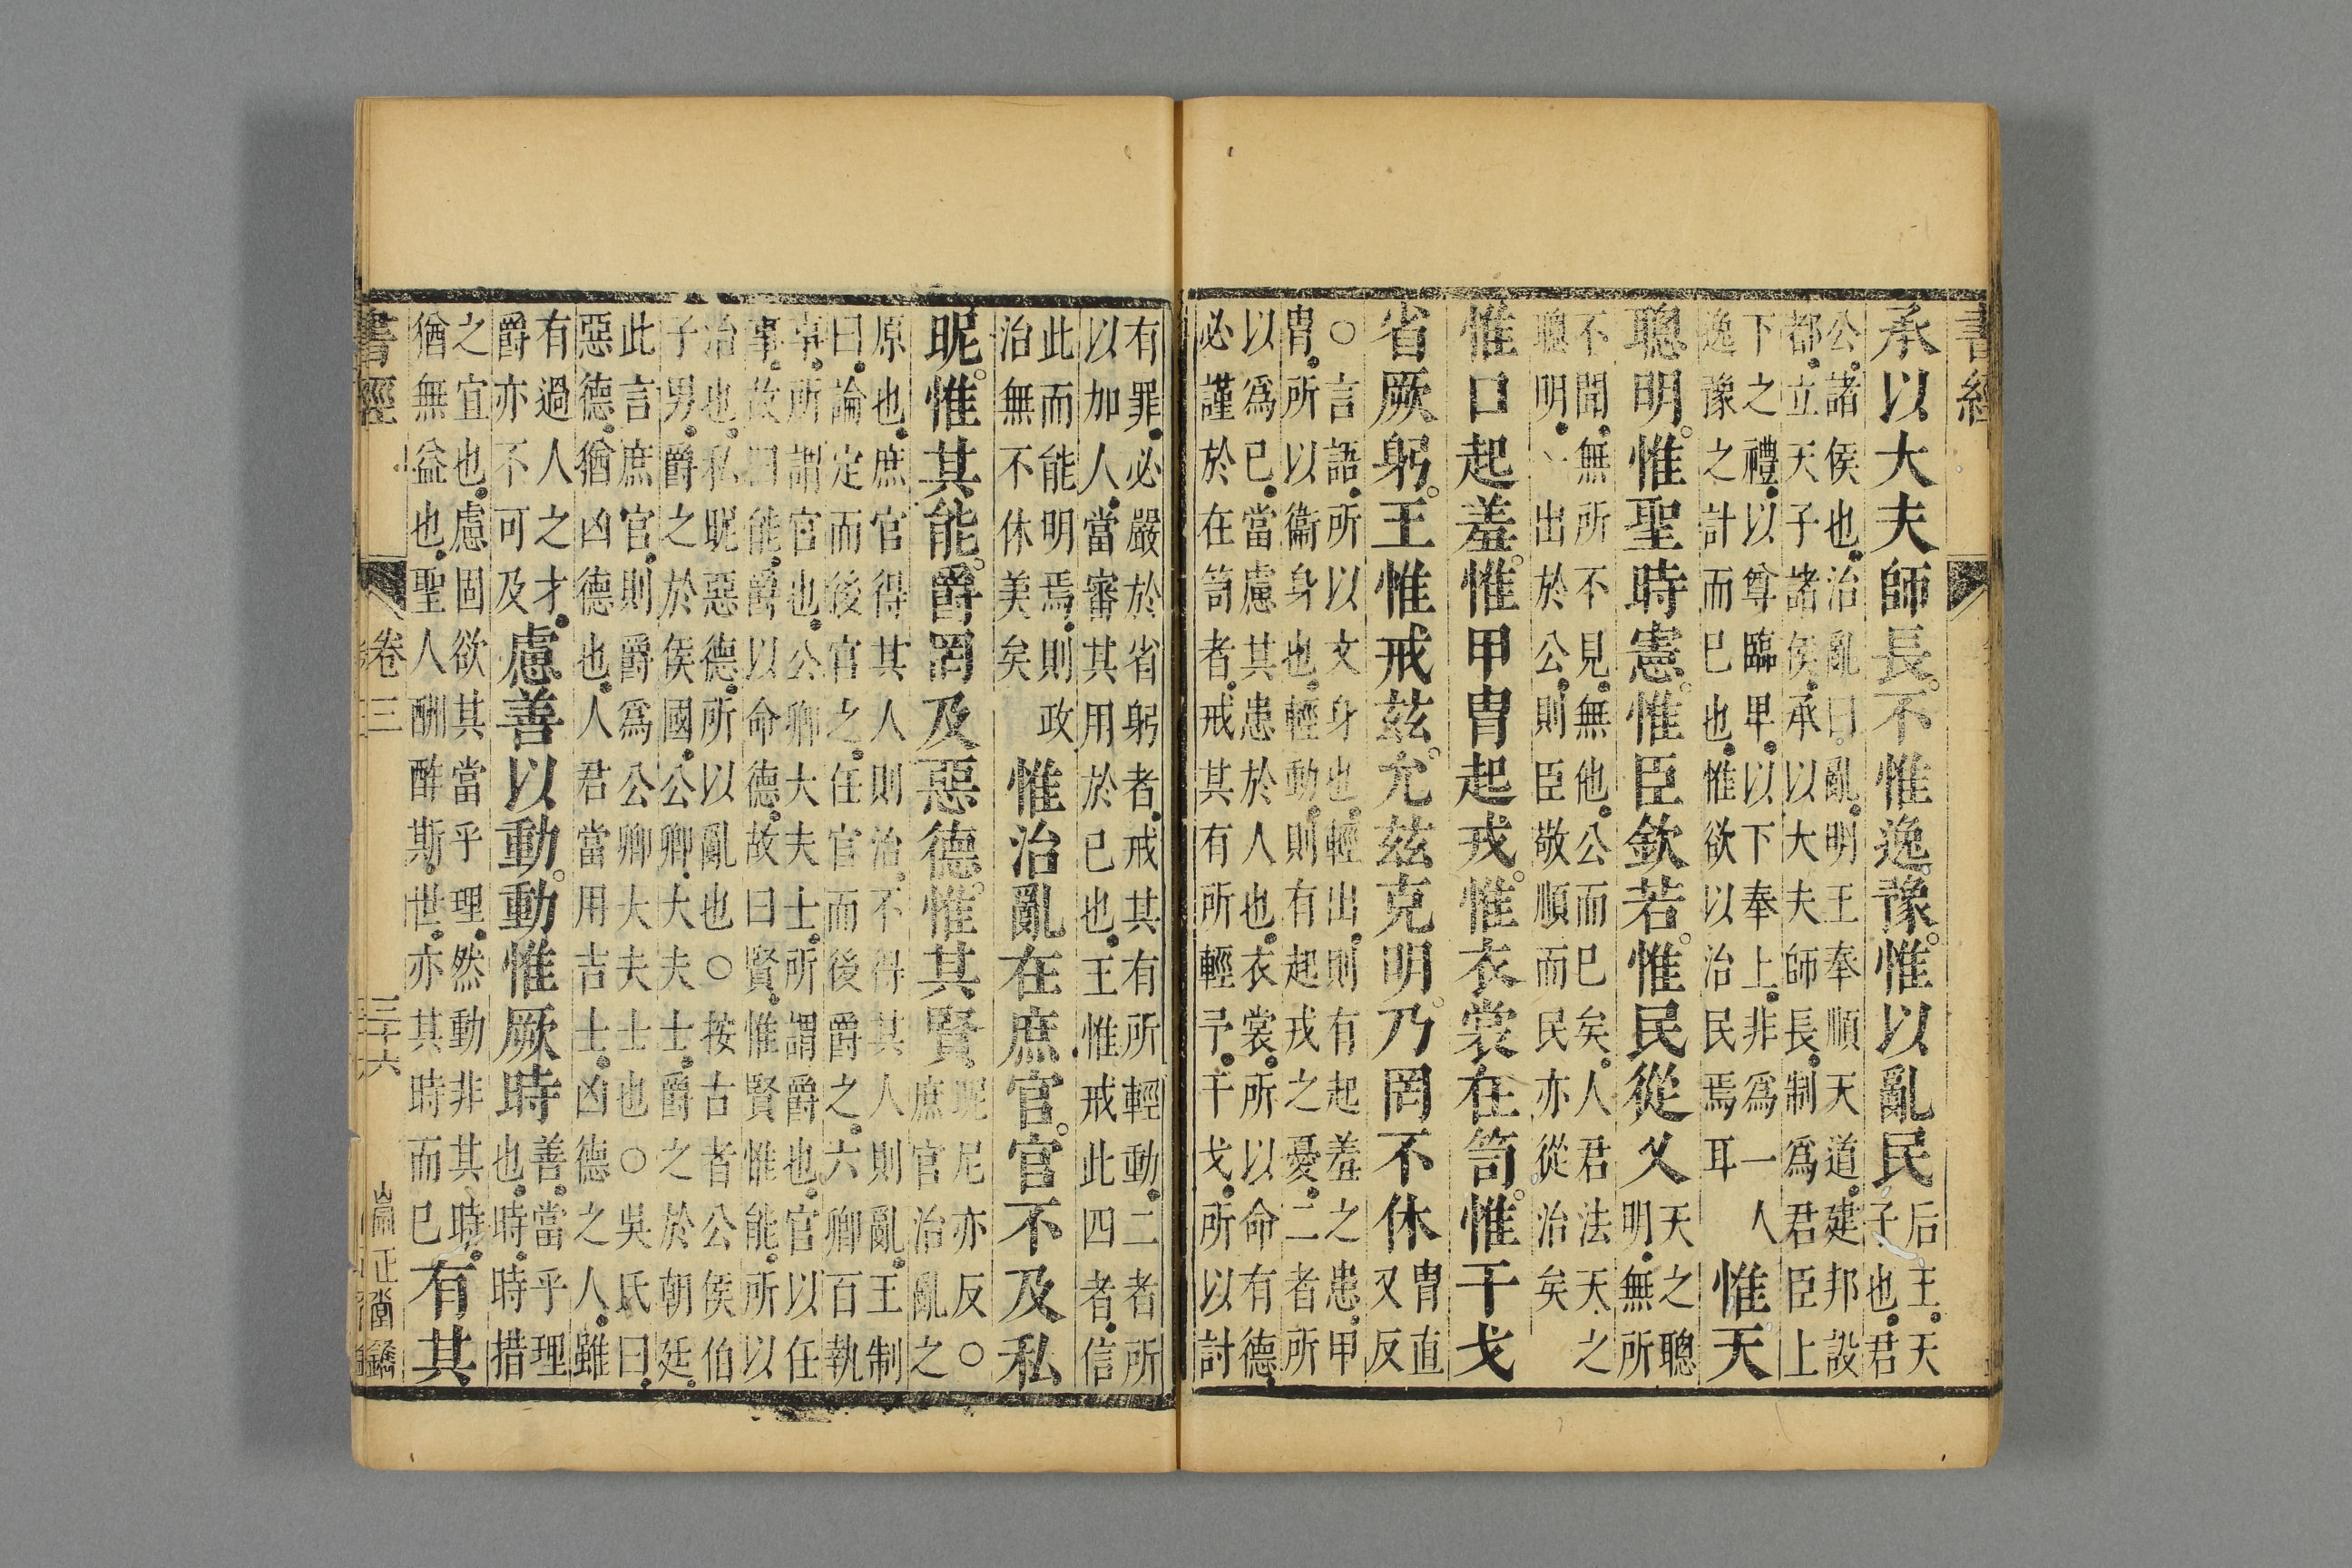 書經
承以大夫師長。不惟逸豫。惟以亂民
后王。天
子也。君
公。諸侯也。治亂曰亂。明王奉順天道。建邦設
都。立天子諸侯。承以大夫師長。制爲君臣上
下之禮。以尊臨卑。以下奉上。非爲一人
逸豫之計而已也。惟欲以治民焉耳
惟天
聰明。惟聖時憲。惟臣欽若。惟民從乂
天之聰
明。無所
不聞。無所不見。無他。公而已矣。人君法天之
聰明。出於公。則臣敬順而民亦從治矣
惟口起羞。惟甲冑起戎。惟衣裳在笥。惟干戈
省厥躬。王惟戒茲。允茲克明。乃罔不休
冑直
又反
○言語。所以文身也。輕出。則有起羞之患。甲
冑。所以衞身也。輕動。則有起戎之憂。二者所
以爲已。當慮其患於人也。衣裳。所以命有德。
必謹於在笥者。戒其有所輕予。干戈。所以討
有罪。必嚴於省躬者。戒其有所輕動。二者所
以加人。當審其用於已也。王惟戒此四者。信
此而能明焉。則政
治無不休美矣
惟治亂在庶官。官不及私
昵。惟其能。爵罔及惡德。惟其賢
昵尼亦反○
庶官治亂之
原也。庶官得其人則治。不得其人則亂。王制
曰。論定而後官之。任官而後爵之。六卿百執
事。所謂官也。公卿大夫士。所謂爵也。官以任
事。故曰能。爵以命德。故曰賢。惟賢惟能。所以
治也。私昵惡德。所以亂也○按古者公侯伯
子男。爵之於侯國。公卿。大夫士。爵之於朝廷。
此言庶官。則爵爲公卿大夫士也○吳氏曰。
惡德。猶凶德也。人君當用吉士。凶德之人。雖
有過人之才。
爵亦不可及
慮善以動。動惟厥時
善。當乎理
也。時。時措
之宜也。慮固欲其當乎理。然動非其時。
猶無益也。聖人酬酢斯世。亦其時而已
有其
書經
卷三
三十六
崇正堂鐫